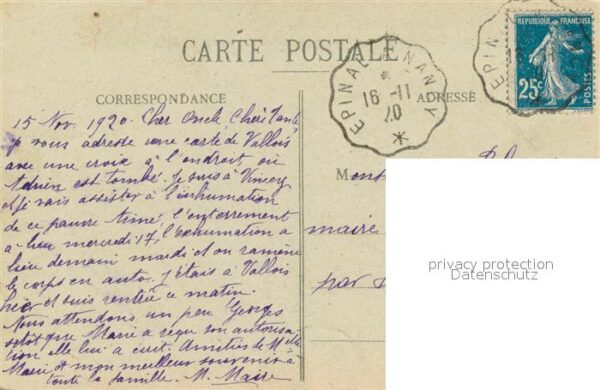 CARTE POSTALE
CORRESPONDANCE
ADRESSE
EPINAL A NANCY
16 - 11
20
REPUBLIQUE FRANÇAISE
25c
POSTES
EPINA
15 Nov. 1920. Cher Oncle, Chère Tante
je vous adresse une carte de Vallois
avec une croix à l'endroit où
Adrien est tombé. Je suis à Vincey
et je vais assister à l'inhumation
de ce pauvre aimé, l'enterrement
a lieu mercredi 17, l'exhumation a
lieu demain mardi et on ramène
le corps en auto. J'étais à Vallois
hier et suis rentrée ce matin.
Nous attendons un peu Georges
sitôt que Marie a reçu son autorisa
tion elle lui a écrit. Amitiés de
Marie et mon meilleur souvenir à
toute la famille. M. Maire
Mons
maire
par
privacy protection
Datenschutz